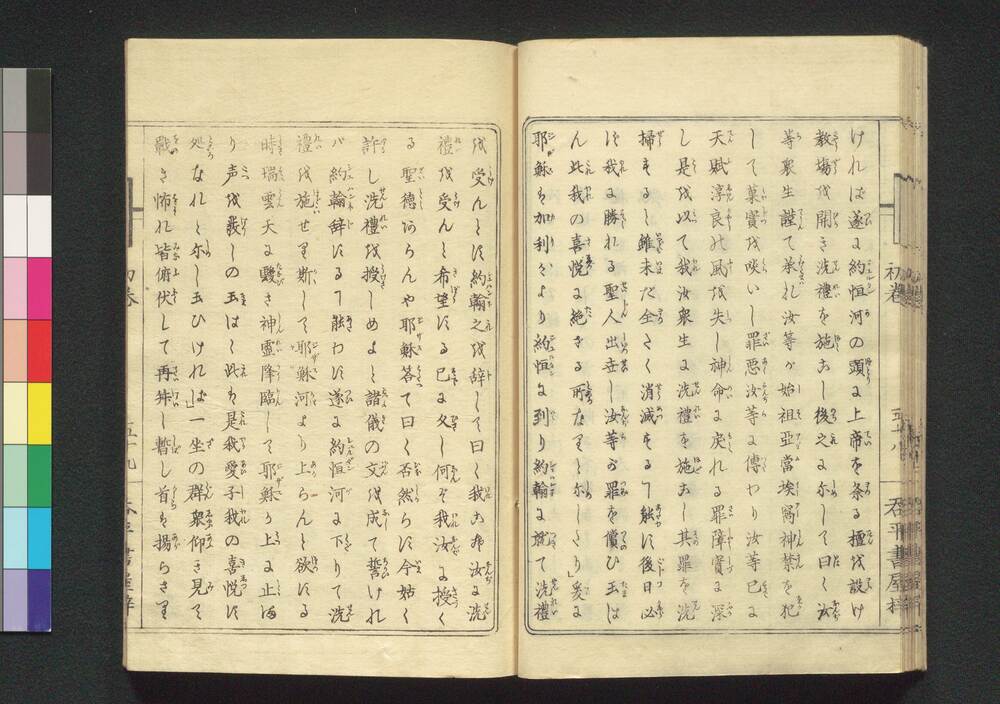 ければ遂に約恒河の頭に上帝を祭る檀を設け
教場を開き洗禮を施おし後之に尓して曰く汝
等衆生謹て栄れ汝等が始祖亞當埃冩神禁を犯
して菓實を啖いし罪惡汝等に傳わり汝等已に
天賦淳良の風を失し神命に戻れる罪障實に深
し是を以て我汝衆生に洗禮を施おし其罪を洗
掃するゝ雖未だ全たく消滅する了能に後日必
ず我に勝れる聖人出世し汝等が罪を償ひ玉は
ん此我の喜悦に絶ざる所なりとしめしたり」爰に
耶穌は加利がより約恒に到り約翰に於て洗禮
初巻
五十八
呑平書屋梓
を受んとに約翰之を辞して曰く我こそ汝に洗
禮を受んと希望にる已に久し何ぞ我汝に授く
る聖徳あらんや耶穌答て曰く否然らに今姑く
許し洗禮を授しめよと諸儀の文を成て誓けれ
バ約翰辞にる了能わに遂に約恒河に下りて洗
禮を施せり斯して耶穌河より上らんと欲にる
時瑞雲天に靉き神靈降臨して耶穌の上に止ま
り声を發しの玉はく此は是我愛子我の喜悦に
処なれと尓し玉ひければ」一坐の群衆仰き見て
戰き怖れ皆俯伏して再拜し暫し首を揚らさり
初巻
五十九
呑平書屋梓